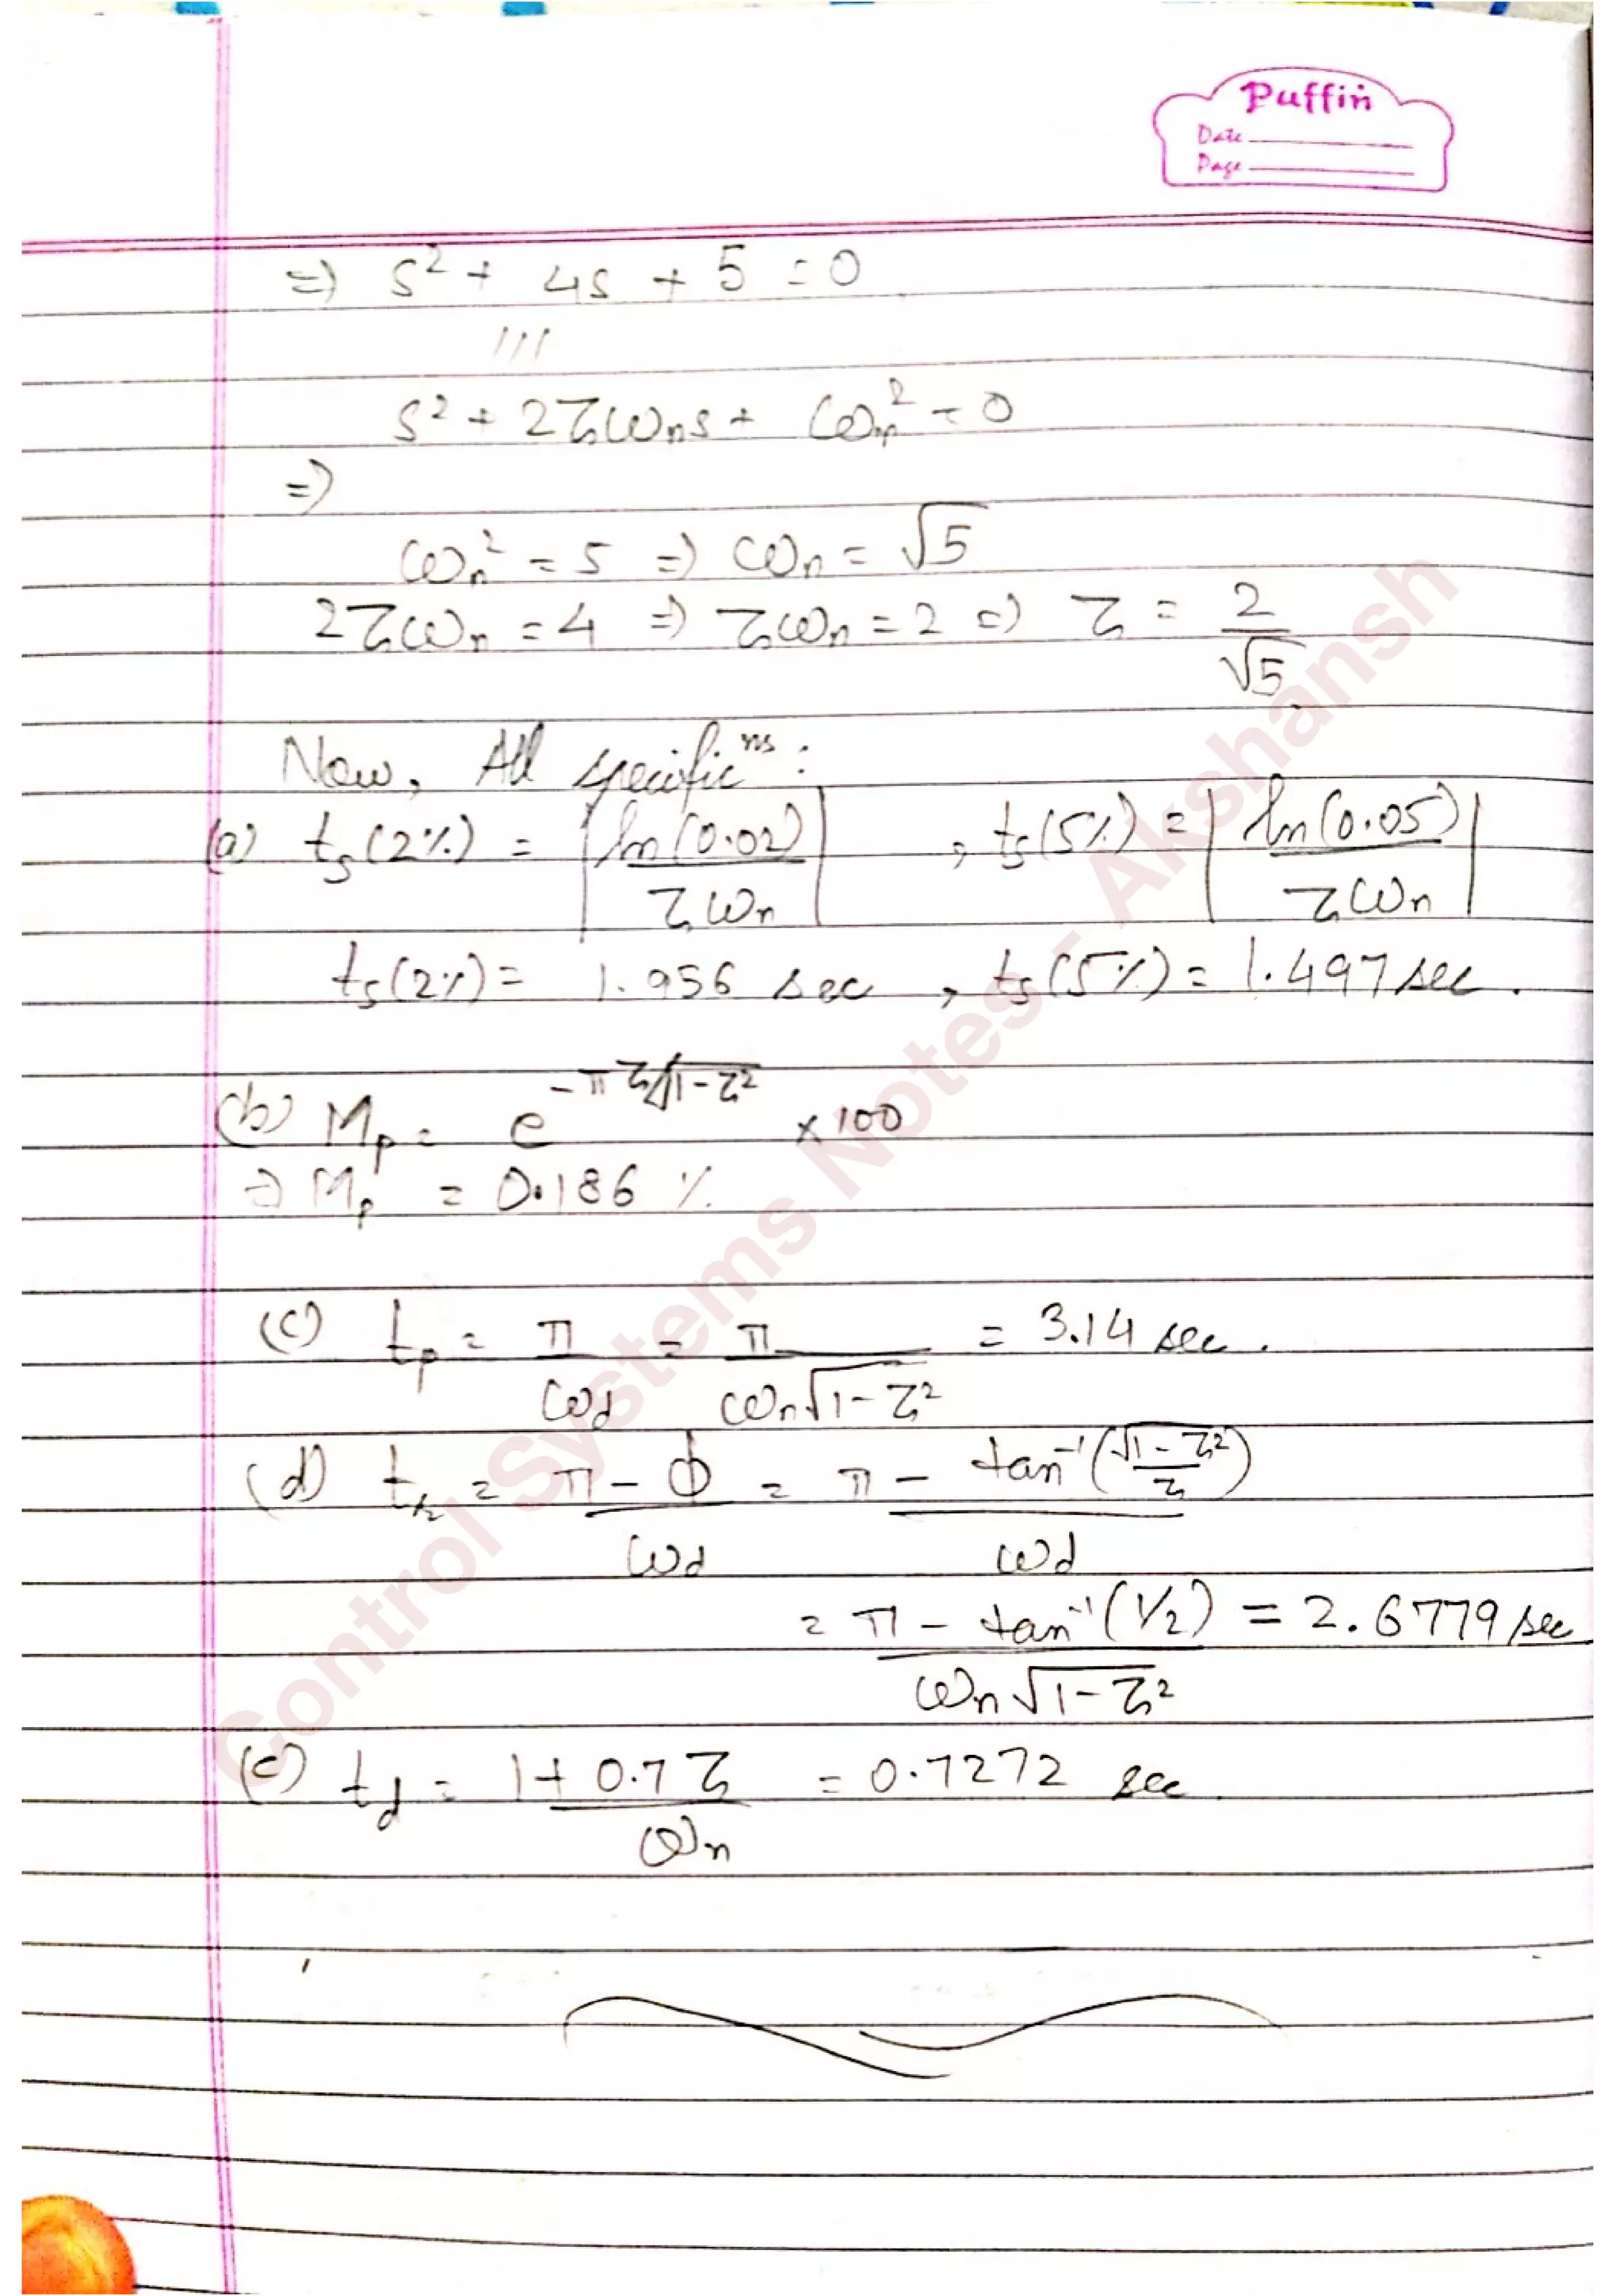 Puffin
Date
Page
=> s² + 4s + 5 = 0
111
s² + 2ζωₙs + ωₙ² = 0
=>
ωₙ² = 5 => ωₙ = √5
2ζωₙ = 4 => ζωₙ = 2 => ζ = 2/√5
Now, All specificⁿˢ :
(a) tₛ(2%) = |ln(0.02)/ζωₙ| , tₛ(5%) = |ln(0.05)/ζωₙ|
tₛ(2%) = 1.956 sec , tₛ(5%) = 1.497 sec.
(b) Mₚ = e^(-πζ/√(1-ζ²)) × 100
=> Mₚ = 0.186 %
(c) tₚ = π/ω_d = π/(ωₙ√(1-ζ²)) = 3.14 sec.
(d) tᵣ = (π - ϕ)/ω_d = (π - tan⁻¹(√(1-ζ²)/ζ))/ω_d
= (π - tan⁻¹(1/2))/(ωₙ√(1-ζ²)) = 2.6779 sec
(e) t_d = (1 + 0.7ζ)/ωₙ = 0.7272 sec.
Control Systems Notes - Akshansh